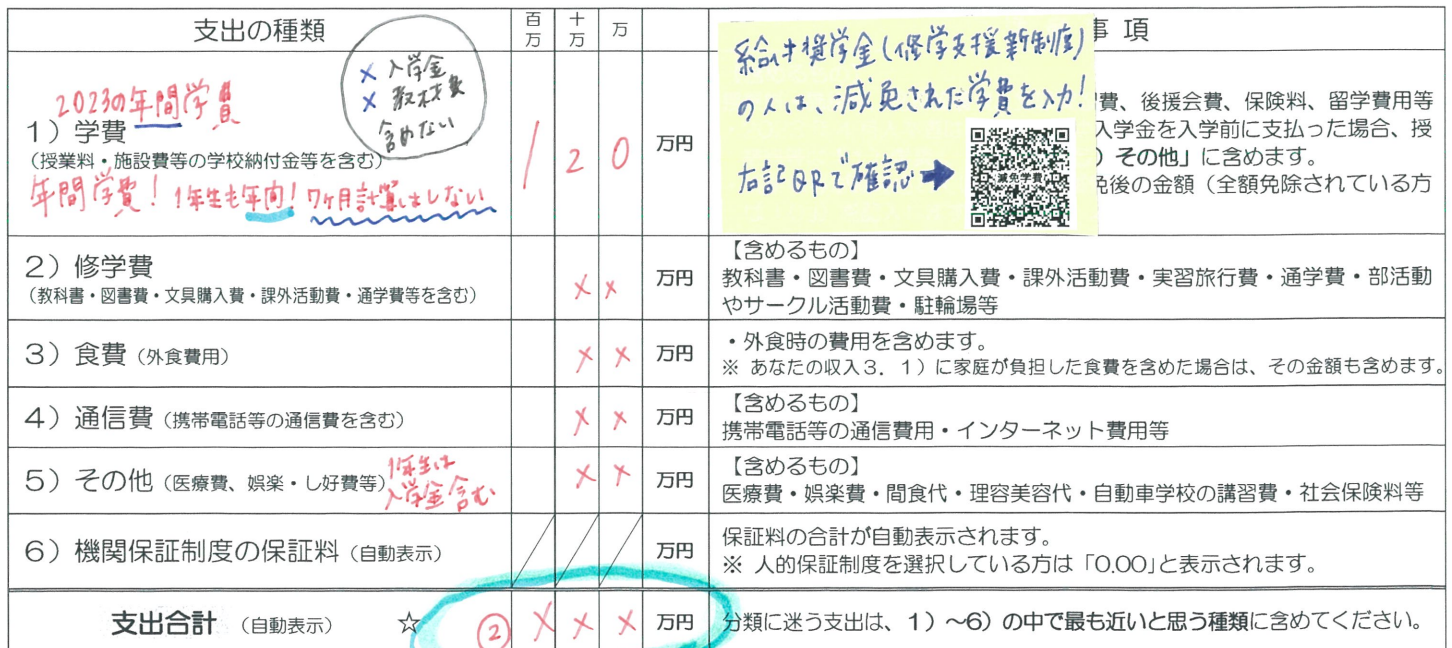 支出の種類
百万
十万
万
事 項
2023の年間学費
× 入学金
× 教材費
含めない
1）学費
（授業料・施設費等の学校納付金等を含む）
年間学費！ 1年生も年間！ 7ヶ月計算はしない
1 2 0 万円
給付奨学金（修学支援新制度）
の人は、減免された学費を入力！
右記QRで確認➡
減免学費
費、後援会費、保険料、留学費用等
入学金を入学前に支払った場合、授
）その他」に含めます。
免後の金額（全額免除されている方
2）修学費
（教科書・図書費・文具購入費・課外活動費・通学費等を含む）
× × 万円
【含めるもの】
教科書・図書費・文具購入費・課外活動費・実習旅行費・通学費・部活動
やサークル活動費・駐輪場等
3）食費（外食費用）
× × 万円
・外食時の費用を含めます。
※ あなたの収入3．1）に家庭が負担した食費を含めた場合は、その金額も含めます。
4）通信費（携帯電話等の通信費を含む）
× × 万円
【含めるもの】
携帯電話等の通信費用・インターネット費用等
5）その他（医療費、娯楽・し好費等）
1年生は
入学金含む
× × 万円
【含めるもの】
医療費・娯楽費・間食代・理容美容代・自動車学校の講習費・社会保険料等
6）機関保証制度の保証料（自動表示）
万円
保証料の合計が自動表示されます。
※ 人的保証制度を選択している方は「0.00」と表示されます。
支出合計（自動表示） ☆
② × × × 万円
分類に迷う支出は、1）～6）の中で最も近いと思う種類に含めてください。